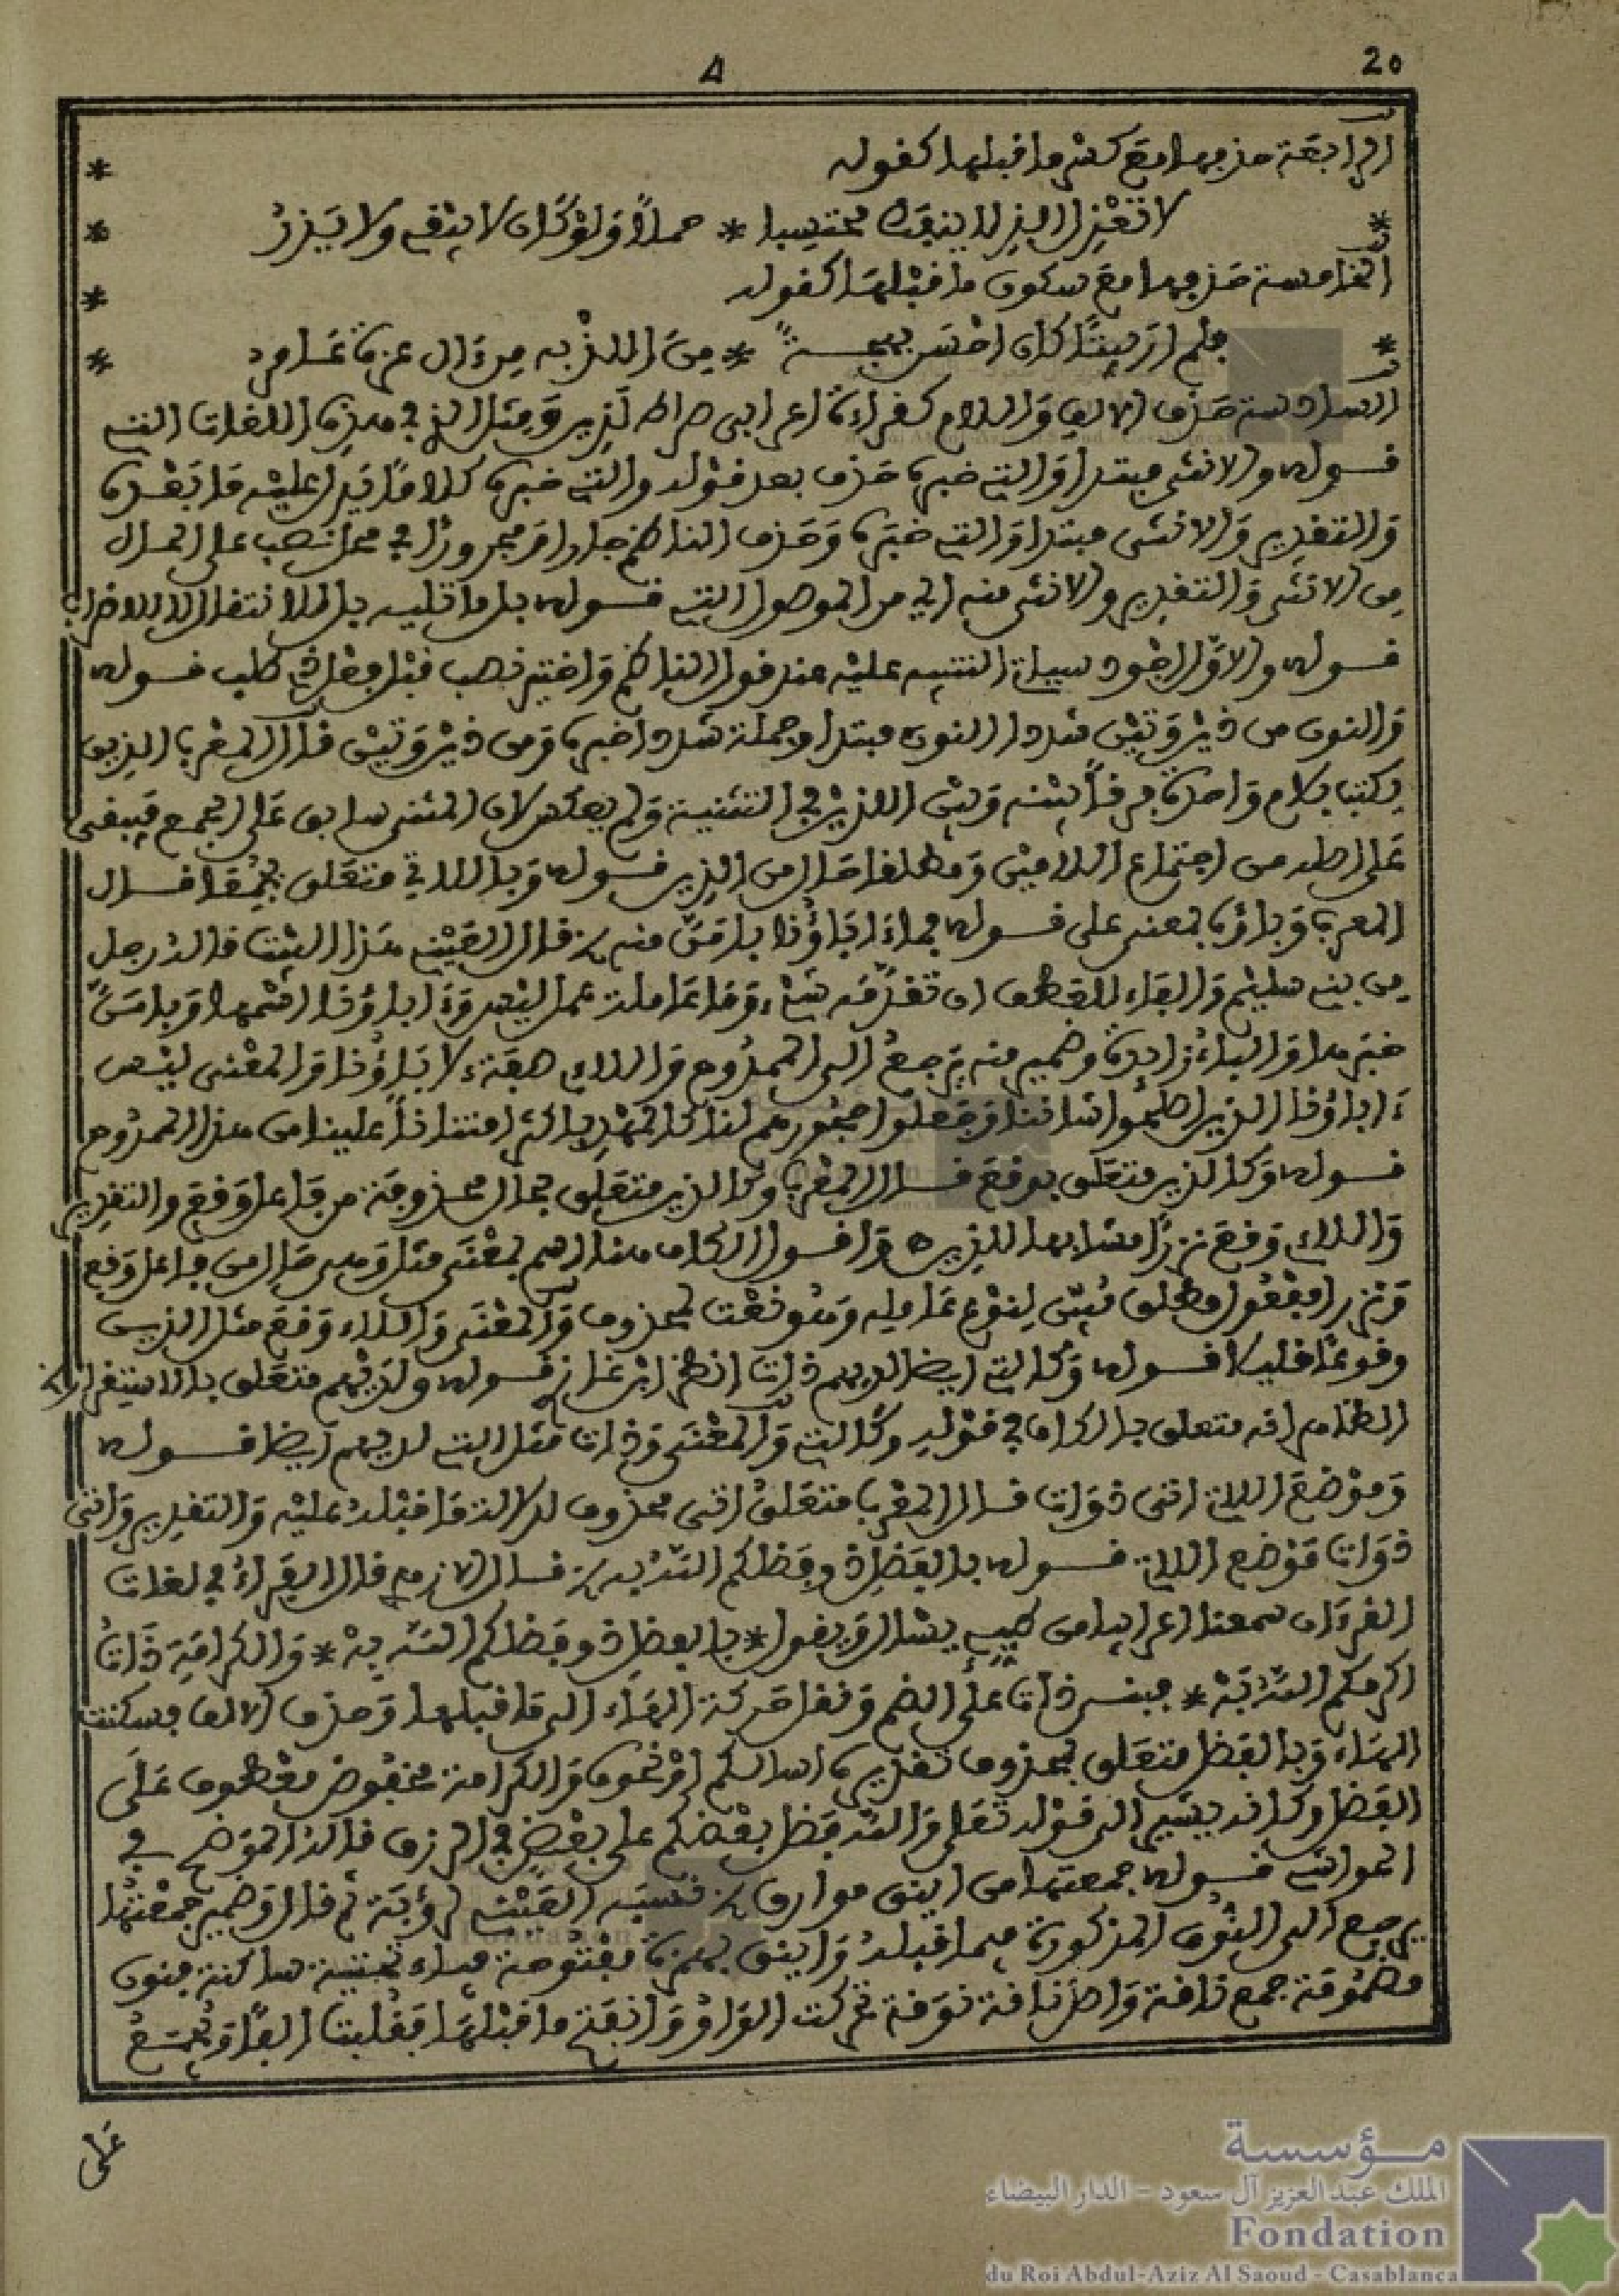 20
٨
الرابعة حذفها مع كسر ما قبلها كقوله *
* لا تعذل الذ لا ينفك محتسبا * حمدا ولو كان لا يبقي ولا يذر *
الخامسة حذفها مع سكون ما قبلها كقوله *
* فلم أر بيتا كان أحسن بهجة * من اللذ به من ءال عزة عامر *
السادسة حذف الالف واللام كقراءة اعرابي صراط لذين ومثل الذي في هذه اللغات التي
قوله والانثى مبتدا والتي خبره حذف بعد قوله والتي خبره كلاما يدل عليه ما بعده
والتقدير والانثى مبتدا والتي خبره وحذف الناظم جارا ومجرورا في محل نصب على الحال
من الانثى والتقدير والانثى منه اي من الموصول التي قوله بل ما تليه بل للانتقال لا للاضراب
قوله والاول اجود سياتي التنبيه عليه عند قول الناظم واختير نصب قبل فعل ذي طلب قوله
والنون من ذين وتين شددا النون مبتدا وجملة شددا خبره ومن ذين وتين قال المعرب الذين
يكتب بلام واحدة فرقا بينه وبين اللذين في التثنية ولم يعكس لان المثنى سابق على الجمع فيبقى
على اصله من اجتماع اللامين ومطلقا حال من الذين قوله وباللاتي متعلق بجمعا قال
المعرب وباؤه بمعنى على قوله فما ءاباؤنا بامن منه قال العيني هذا البيت قاله رجل
من بني سليم والفاء للعطف ان تقدمه شيء وما عاملة عمل ليس وءاباؤنا اسمها وبامن
خبرها والباء زايدة وضمير منه يرجع الى الممدوح واللاء صفة لاباؤنا والمعنى ليس
ءاباؤنا الذين اصلحوا شاننا وجعلوا حجورهم لنا كالمهد باكثر امتنانا علينا من هذا الممدوح
قوله وكالذين متعلق بوقع قال المعرب وكالذين متعلق بحال محذوفة من فاعل وقع والتقدير
واللاء وقع نزرا مشابها للذين ه واقول الكاف هنا اسم بمعنى مثل وهي حال من فاعل وقع
ونزرا مفعول مطلق مبين لنوع عامله وهو نعت لمحذوف والمعنى واللاء وقع مثل الذين
وقوعا قليلا قوله وكالتي ايضا لديهم ذات انظر ابن غازي قوله ولديهم متعلق بالاستقرار
الظاهر انه متعلق بالكاف في قوله وكالتي والمعنى وذات مثل التي لديهم ايضا قوله
وموضع اللاتي اتى ذوات قال المعرب متعلق اتى محذوف لدلالة ما قبله عليه والتقدير واتى
ذوات موضع اللاتي قوله بالفضل ذو فضلكم الله به قال الازهري قال الفراء في لغات
القرءان سمعنا اعرابيا من طيء يسال ويقول * بالفضل ذو فضلكم الله به * والكرامة ذات
اكرمكم الله به * فبنى ذات على الضم ونقل حركة الهاء الى ما قبلها وحذف الالف فسكنت
الهاء وبالفضل متعلق بمحذوف تقديره اسالكم او نحوه والكرامة مخفوض معطوف على
الفضل وكانه يشير الى قوله تعلى والله فضل بعضكم على بعض في الرزق قاله الموضح في
الحواشي قوله جمعتها من اينق موارق نسبه العيني لرؤبة ثم قال وضمير جمعتها
يرجع الى النوق المذكورة فيما قبله واينق بهمزة مفتوحة فياء تحتية ساكنة فنون
مضمومة جمع ناقة واصل ناقة نوقة تحركت الواو وانفتح ما قبلها فقلبت الفا وتجمع
على
مؤسسة
الملك عبد العزيز آل سعود - الدار البيضاء
Fondation
du Roi Abdul-Aziz Al Saoud - Casablanca